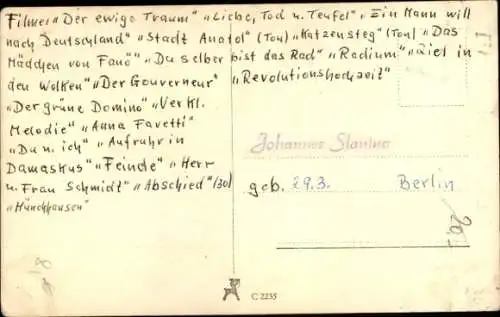 Filme: "Der ewige Traum" "Liebe, Tod u. Teufel" "Ein Mann will
nach Deutschland" "Stadt Anatol" (Ton) "Katzensteg" (Ton) "Das
Mädchen von Fanö" "Du selber bist das Rad" "Radium" "Ziel in
den Wolken" "Der Gouverneur" "Revolutionshochzeit"
"Der grüne Domino" "Verkl.
Melodie" "Anna Favetti"
"Du u. ich" "Aufruhr in
Damaskus" "Feinde" "Herr
u. Frau Schmidt" "Abschied" (30)
"Münchhausen"
Johannes
geb. 29.3. Berlin
20,-
C 2235